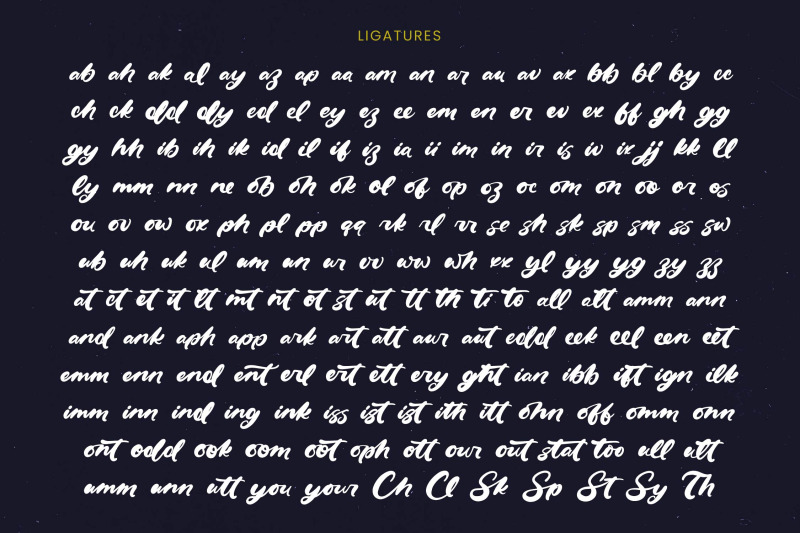 LIGATURES
ab ah ak al ay az ap aa am an ar au av ax bb bl by cc
ch ck dd dy ed el ey ez ee em en er ev ex ff gh gg
gy hh ib ih ik id il if iz ia ii im in ir is iv ix jj kk ll
ly mm nn ne ob oh ok ol of op oz oc om on oo or os
ou ov ow ox ph pl pp qq rk rl rr se sh sk sp sm ss sw
ub uh uk ul um un ur vv ww wh xx yl yy yg zy zz
at ct et it lt mt nt ot st ut tt th ti to all att amm ann
and ank aph app ark art att aur aut edd eek eel een eet
emm enn end ent erl ert ett ery ght ian ibb ift ign ilk
imm inn ind ing ink iss ist ist ith itt ohn off omm onn
ont odd ook oom oot oph ott our out stat too ull ult
umm unn utt you your Ch Cl Sk Sp St Sy Th